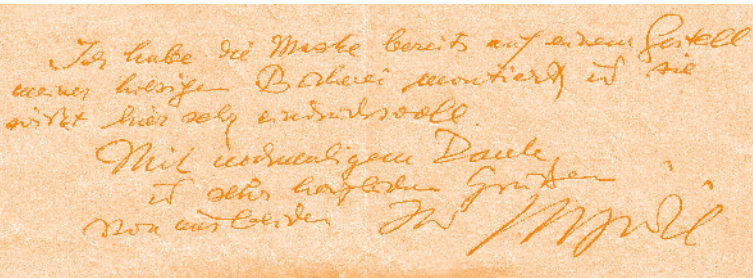 Ich habe die Maske bereits auf einem Gestell
meiner hiesigen Bücherei montiert u sie
wirkt hier sehr eindrucksvoll.
Mit nochmaligem Danke,
u sehr herzlichen Grüßen
von uns beiden Ihr